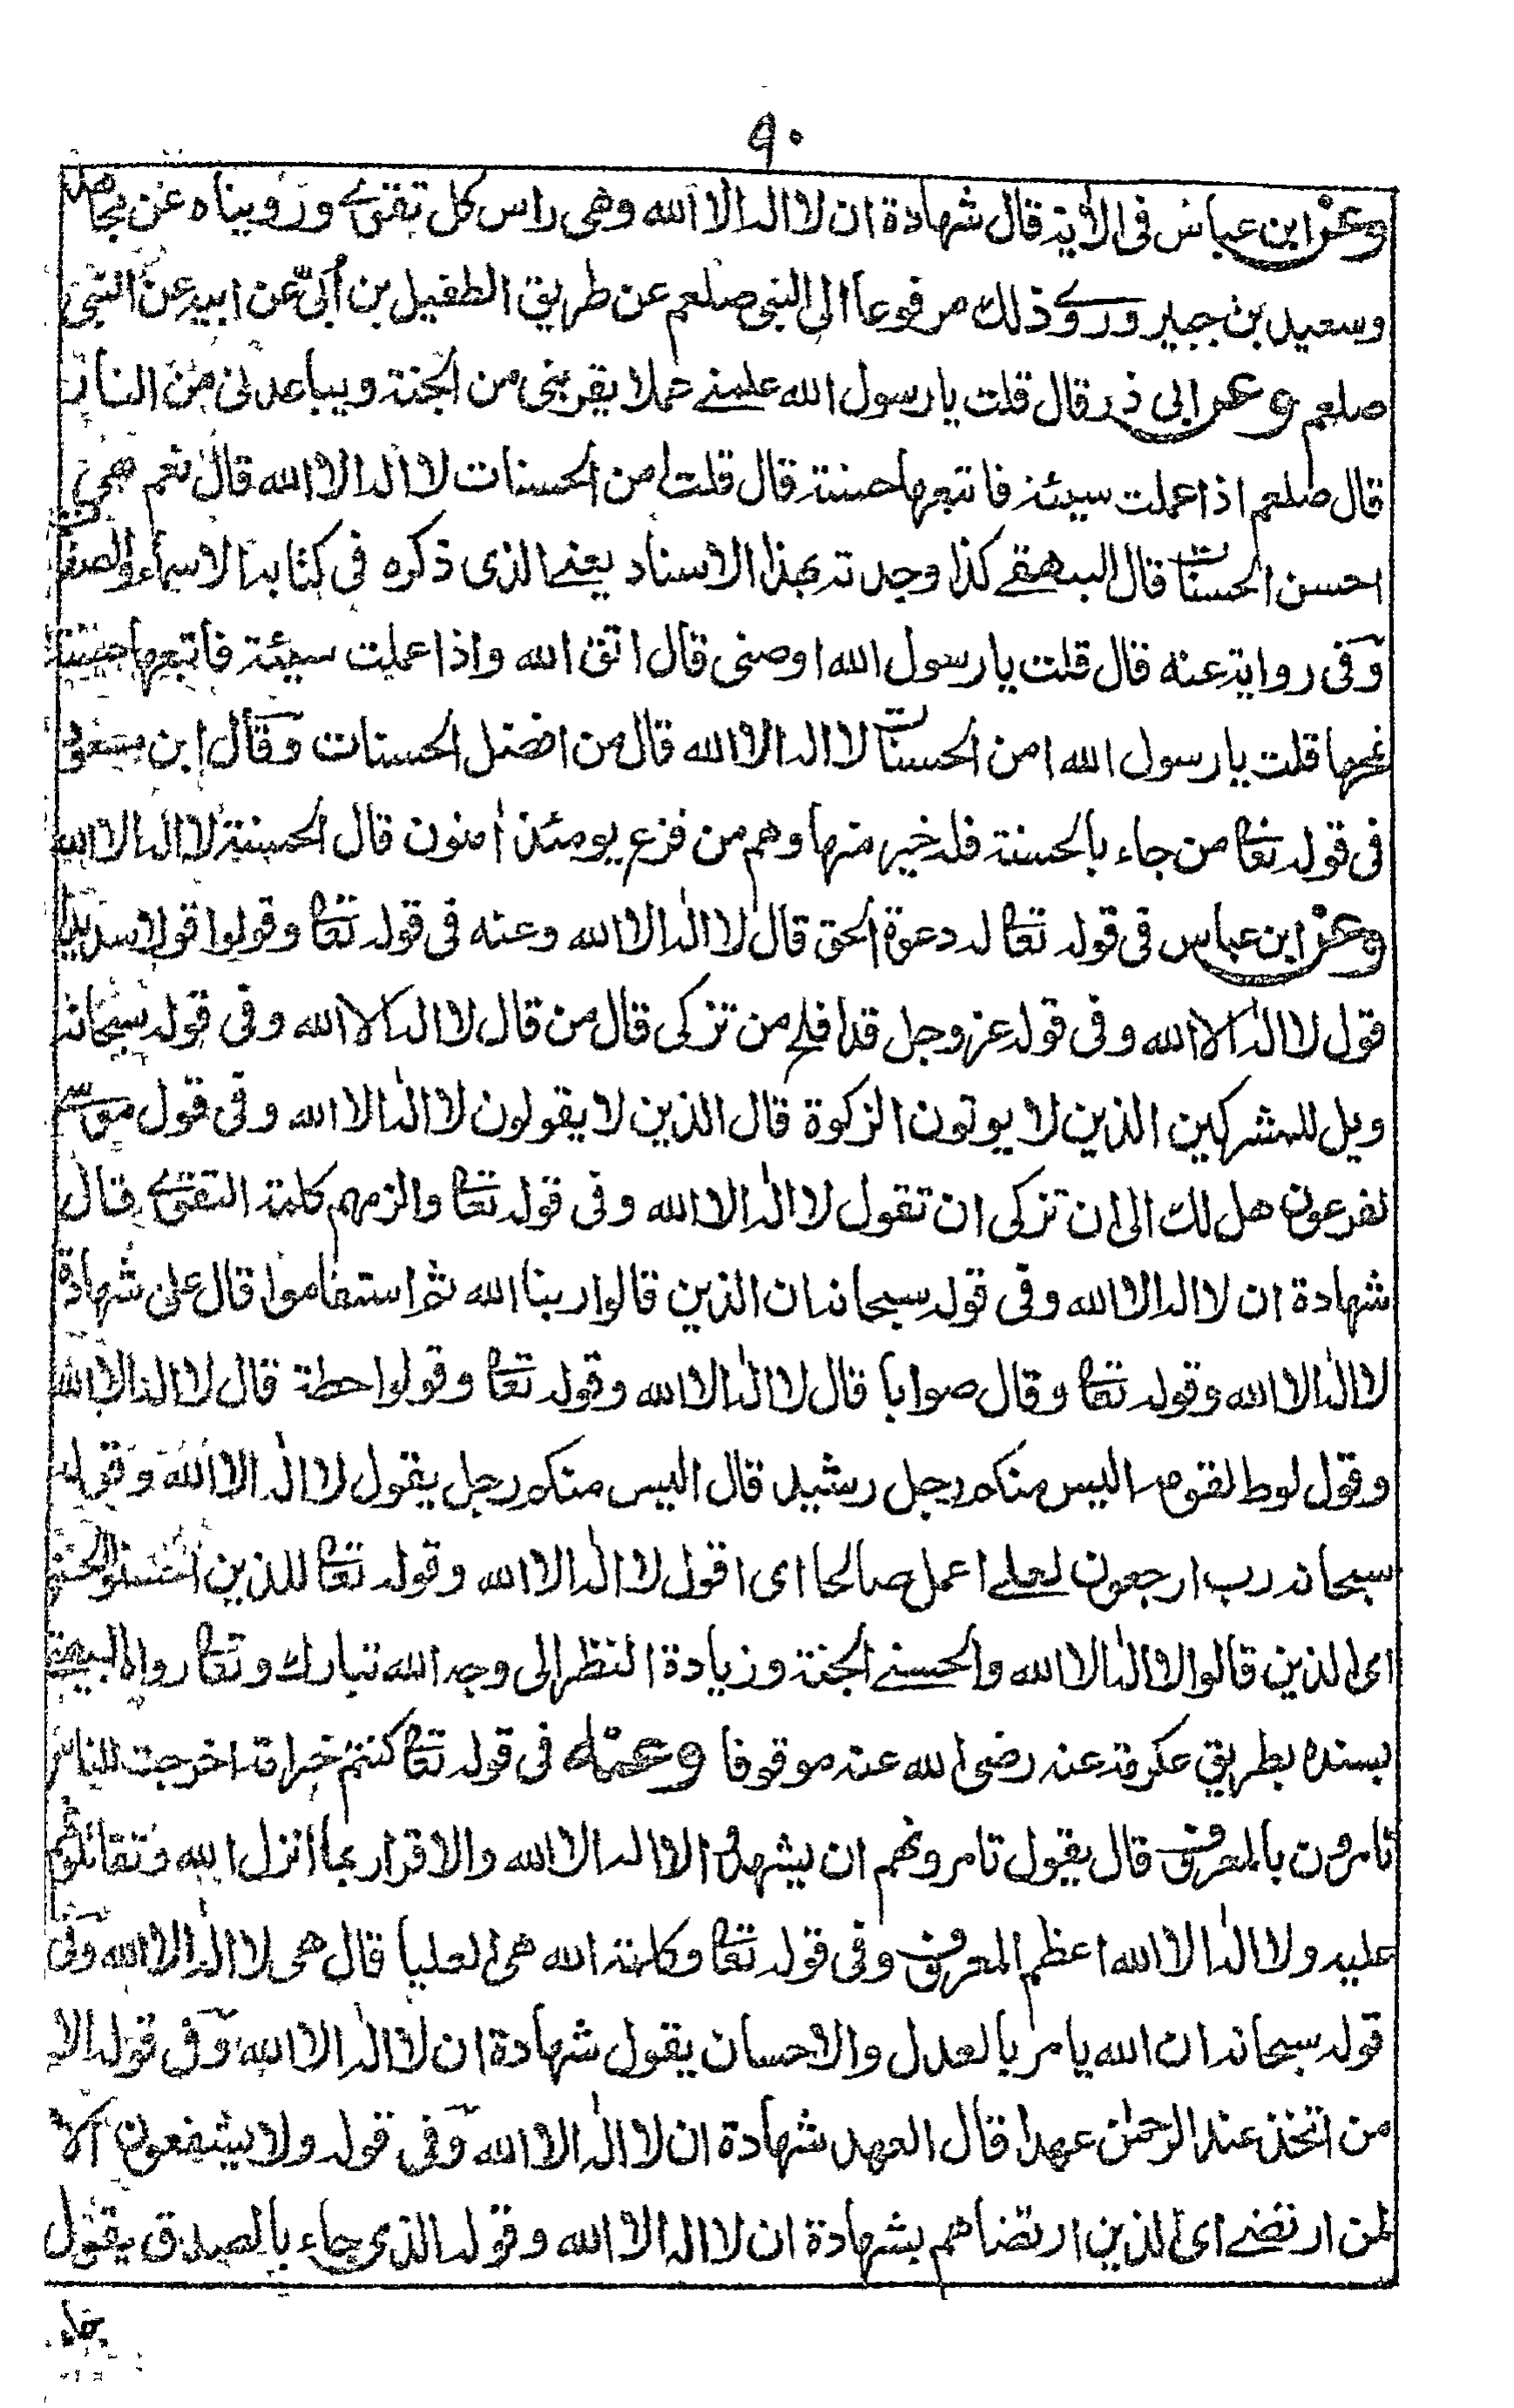 ٩٠
وعن ابن عباس فى الآية قال شهادة ان لا اله الا الله وهى راس كل تقوى ورويناه عن مجاهد
وسعيد بن جبير وروى ذلك مرفوعا الى النبى صلعم عن طريق الطفيل بن أبىّ عن ابيه عن النبى
صلعم وعن ابى ذر قال قلت يا رسول الله علمنى عملا يقربنى من الجنة ويباعدنى من النار
قال صلعم اذا عملت سيئة فاتبعها حسنة قال قلت امن الحسنات لا اله الا الله قال نعم هى
احسن الحسنات قال البيهقى كذا وجدته بهذا الاسناد يعنى الذى ذكره فى كتابه الاسماء والصفات
وفى رواية عنه قال قلت يا رسول الله اوصنى قال اتق الله واذا عملت سيئة فاتبعها حسنة
تمحها قلت يا رسول الله امن الحسنات لا اله الا الله قال من افضل الحسنات وقال ابن مسعود
فى قوله تعا من جاء بالحسنة فله خير منها وهم من فزع يومئذ آمنون قال الحسنة لا اله الا الله
وعن ابن عباس فى قوله تعا له دعوة الحق قال لا اله الا الله وعنه فى قوله تعا وقولوا قولا سديدا
قول لا اله الا الله وفى قوله عز وجل قد افلح من تزكى قال من قال لا اله الا الله وفى قوله سبحانه
ويل للمشركين الذين لا يوتون الزكوة قال الذين لا يقولون لا اله الا الله وفى قول موسى
لفرعون هل لك الى ان تزكى ان تقول لا اله الا الله وفى قوله تعا والزمهم كلمة التقوى قال
شهادة ان لا اله الا الله وفى قوله سبحانه ان الذين قالوا ربنا الله ثم استقاموا قال على شهادة
لا اله الا الله وقوله تعا وقال صوابا قال لا اله الا الله وقوله تعا وقولوا حطة قال لا اله الا الله
وقول لوط لقومه اليس منكم رجل رشيد قال اليس منكم رجل يقول لا اله الا الله وقوله
سبحانه رب ارجعون لعلى اعمل صالحا اى اقول لا اله الا الله وقوله تعا للذين احسنوا الحسنى
اى الذين قالوا لا اله الا الله والحسنى الجنة وزيادة النظر الى وجه الله تبارك وتعا رواه البيهقى
بسنده بطريق عكرمة عنه رضى الله عنه موقوفا وعنه فى قوله تعا كنتم خير امة اخرجت للناس
تامرون بالمعروف قال يقول تامرونهم ان يشهدوا الا اله الا الله والاقرار بما انزل الله وتقاتلونهم
عليه ولا اله الا الله اعظم المعروف وفى قوله تعا وكلمة الله هى العليا قال هى لا اله الا الله وفى
قوله سبحانه ان الله يامر بالعدل والاحسان يقول شهادة ان لا اله الا الله وفى قوله الا
من اتخذ عند الرحمن عهدا قال العهد شهادة ان لا اله الا الله وفى قوله ولا يشفعون الا
لمن ارتضى اى الذين ارتضاهم بشهادة ان لا اله الا الله وقوله الذى جاء بالصدق يقول
جاء